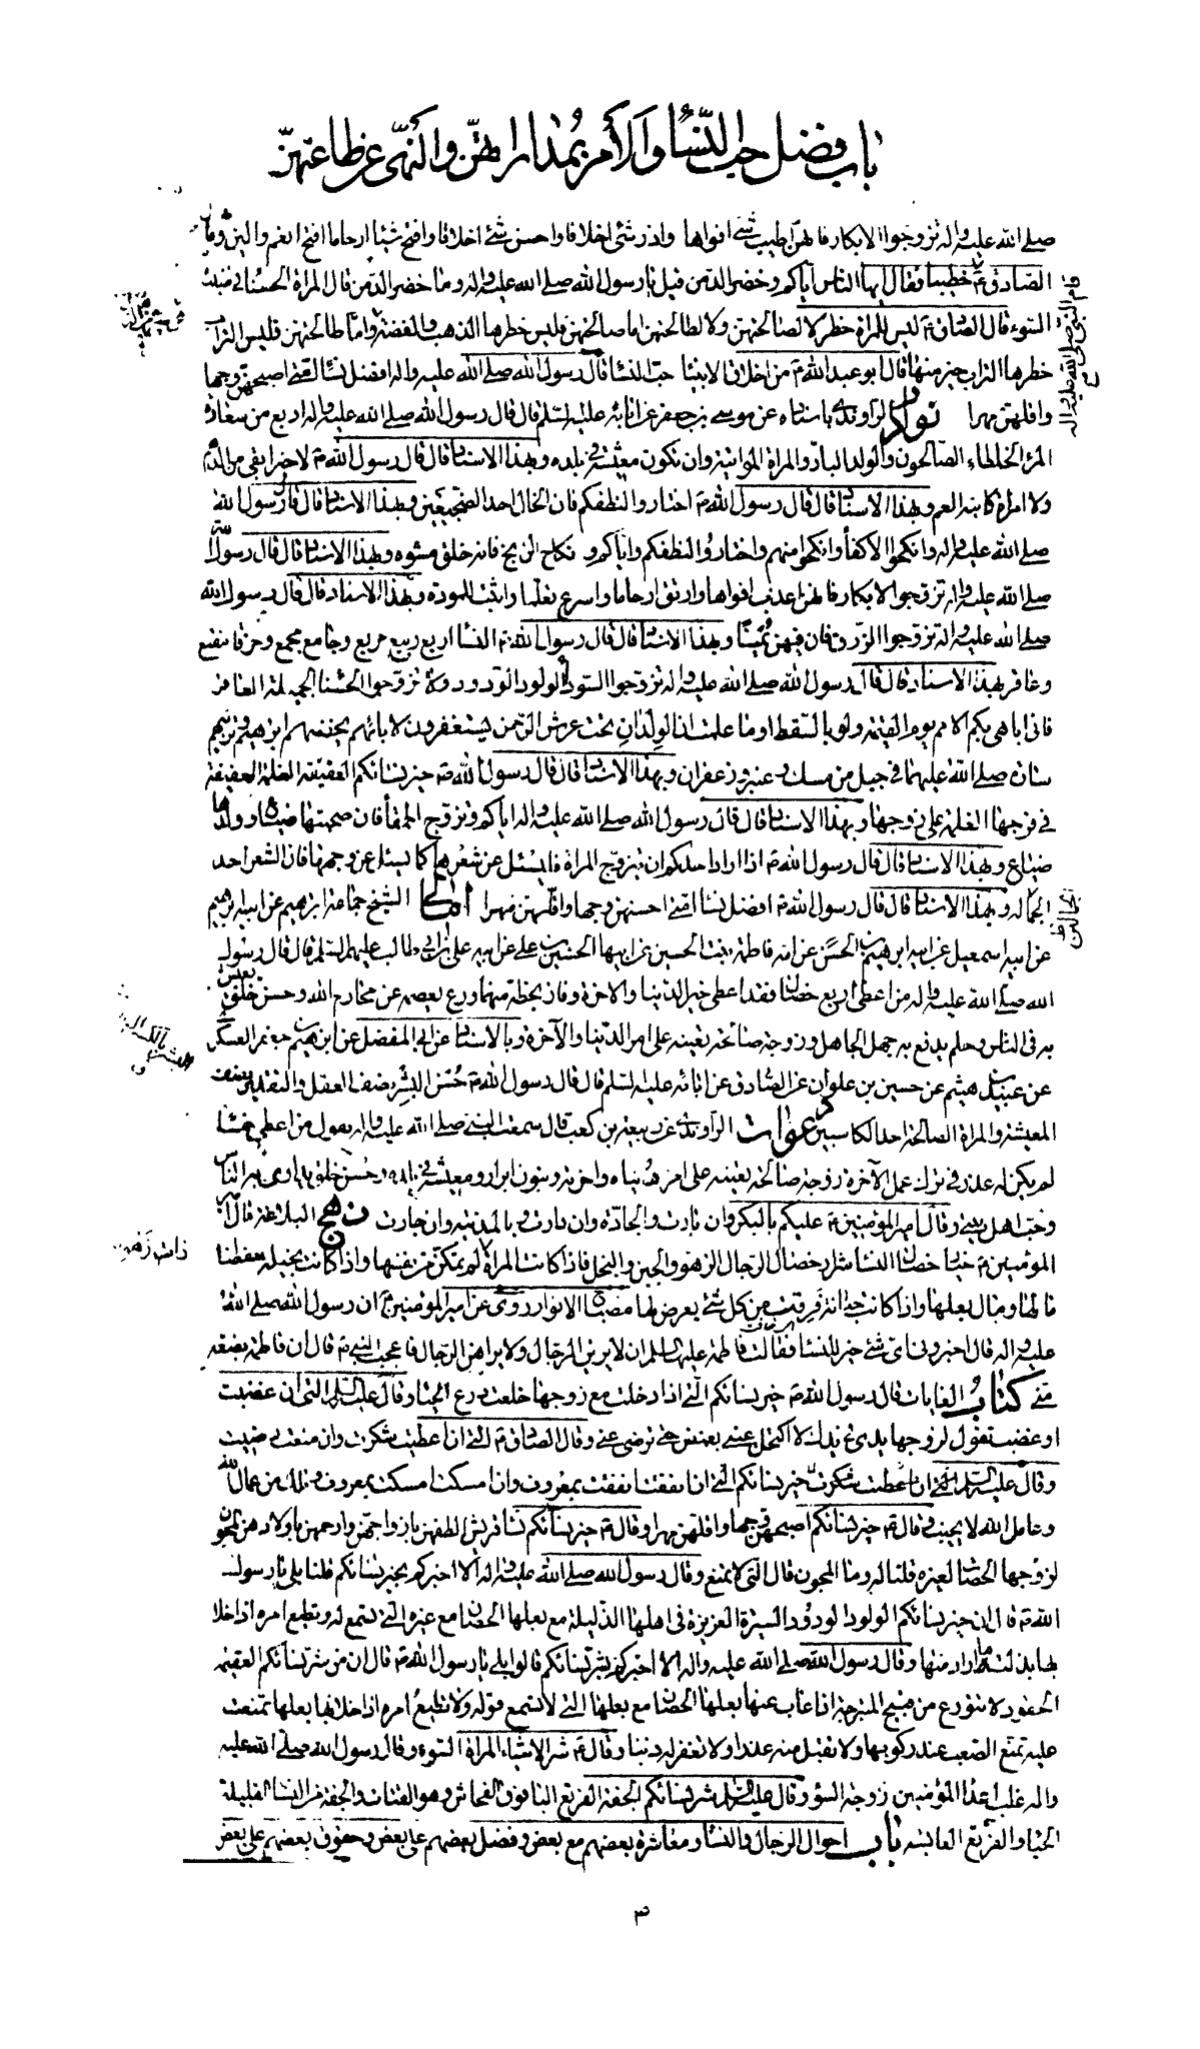 باب فضل حب النساء والأمر بمداراتهن والنهي عن طاعتهن
صلى الله عليه واله تزوجوا الابكار فانهن اطيب شئ افواها وادر شئ اخلافا واحسن شئ اخلاقا وافتح شئ ارحاما
الصادق ع خطيبا فقال ايها الناس اياكم وخضراء الدمن قيل يا رسول الله صلى الله عليه واله وما خضراء الدمن قال المراة الحسناء في منبت
السوء قال الصادق ع ليس للمراة خطر لا لصالحتهن ولا لطالحتهن اما صالحتهن فليس خطرها الذهب والفضة واما طالحتهن فليس التراب
خطرها التراب خير منها قال ابو عبد الله ع من اخلاق الانبياء حب النساء قال رسول الله صلى الله عليه واله افضل نساء امتي اصبحهن وجها
واقلهن مهرا نوادر الراوندي باسناده عن موسى بن جعفر عن ابائه عليه السلم قال قال رسول الله صلى الله عليه واله اربع من سعادة
المرء الخلطاء الصالحون والولد البار والمراة المواتية وان تكون معيشته في بلده وبهذا الاسناد قال قال رسول الله ص
ولا امراة كابنة العم وبهذا الاسناد قال قال رسول الله ص اختاروا لنطفكم فان الخال احد الضجيعين وبهذا الاسناد قال قال رسول الله
صلى الله عليه واله وانكحوا الاكفاء وانكحوا منهم واختاروا لنطفكم واياكم ونكاح الزنج فانه خلق مشوه وبهذا الاسناد قال قال رسول الله
صلى الله عليه واله تزوجوا الابكار فانهن اعذب افواها وارتق ارحاما واسرع تعلما واثبت للمودة وبهذا الاسناد قال قال رسول الله
صلى الله عليه واله تزوجوا الزرق فان فيهن يمنا وبهذا الاسناد قال قال رسول الله ص النساء اربع ربيع مربع وجامع مجمع وخرقاء مقمع
وعاقر بهذا الاسناد قال قال رسول الله صلى الله عليه واله تزوجوا السوداء الولود الودود ولا تزوجوا الحسناء الجميلة العاقر
فاني اباهي بكم الامم يوم القيمة ولو بالسقط اوما علمت ان الولدان تحت عرش الرحمن يستغفرون لابائهم يحضنهم ابرهيم وتربيهم
سارة صلى الله عليهما في جبل من مسك وعنبر وزعفران وبهذا الاسناد قال قال رسول الله ص خير نسائكم العفيفة الغلمة العفيفة
في فرجها الغلمة على زوجها وبهذا الاسناد قال قال رسول الله صلى الله عليه واله اياكم وتزوج الحمقاء فان صحبتها ضياع وولدها
ضياع وبهذا الاسناد قال قال رسول الله ص اذا اراد احدكم ان يتزوج المراة فليسئل عن شعرها كما يسئل عن وجهها فان الشعر احد
الجمالين وبهذا الاسناد قال قال رسول الله ص افضل نساء امتي احسنهن وجها واقلهن مهرا امالي الشيخ جماعة
عن ابيه اسمعيل عن ابيه ابرهيم بن الحسن عن امه فاطمة بنت الحسين عن ابيها الحسين بن علي عن ابيه علي بن ابي طالب عليهم السلم قال قال رسول
الله صلى الله عليه واله من اعطي اربع خصال فقد اعطي خير الدنيا والاخرة وفاز بحظه منهما ورع يعصمه عن محارم الله وحسن خلق يعيش
به في الناس وحلم يدفع به جهل الجاهل وزوجة صالحة تعينه على امر الدنيا والآخرة وبالاسناد عن ابي المفضل
عن حسين بن علوان عن الصادق عن ابائه عليه السلم قال قال رسول الله ص حسن البشر نصف العقل والتقدير نصف
المعيشة والمراة الصالحة احد الكاسبين دعوات الراوندي عن ربيعة بن كعب قال سمعت النبي صلى الله عليه واله يقول من اعطي خمسا
لم يكن له عذر في ترك عمل الآخرة زوجة صالحة تعينه على امر دنياه واخرته وبنون ابرار ومعيشة في بلده وحسن خلق يداري به الناس
وحب اهل بيتي وقال امير المؤمنين ع عليكم بالبكر وان بارت والجادة وان دارت وبالمدينة وان جارت نهج البلاغة قال امير
المؤمنين ع خيار خصال النساء شرار خصال الرجال الزهو والجبن والبخل فاذا كانت المراة لم تمكن من نفسها واذا كانت بخيلة حفظت
مالها ومال بعلها واذا كانت جبانة فرقت من كل شئ يعرض لها مصباح الانوار روي عن امير المؤمنين ع ان رسول الله صلى الله
عليه واله قال اخبروني اي شئ خير للنساء فقالت فاطمة عليها السلم ان لا يرين الرجال ولا يراهن الرجال فاعجب النبي ص قال ان فاطمة بضعة
مني كتاب الغايات قال رسول الله ص خير نسائكم التي اذا دخلت مع زوجها خلعت درع الحياء وقال عليه السلم التي ان غضبت
او غضب تقول لزوجها يدي في يدك لا اكتحل عيني بغمض حتى ترضى عني وقال الصادق ع التي ان اعطيت شكرت وان منعت رضيت
وقال عليه السلم التي ان اعطيت شكرت خير نسائكم التي ان انفقت انفقت بمعروف وان امسكت امسكت بمعروف من عمال الله
وعامل الله لا يخيب وقال ص خير نسائكم اصبحهن وجها واقلهن مهرا وقال ص خير نسائكم نساء قريش الطفهن بازواجهن وارحمهن باولادهن المجون
لزوجها الحصان لغيره قلنا له وما المجون قال التي لا تمنع وقال رسول الله صلى الله عليه واله الا اخبركم بخير نسائكم قلنا بلى يا رسول
الله ص قال ان خير نسائكم الولود الودود الستيرة العزيزة في اهلها الذليلة مع بعلها الحصان مع غيره التي تسمع له وتطيع امره اذا خلا
بها بذلت ما اراد منها وقال رسول الله صلى الله عليه واله الا اخبركم بشر نسائكم قالوا بلى يا رسول الله ص قال ان من شر نسائكم العقيمة
الحقود لا تتورع من قبيح المتبرجة اذا غاب عنها بعلها الحصان مع بعلها التي لا تسمع قوله ولا تطيع امره اذا خلا بها بعلها تمنعت
عليه تمنع الصعب عند ركوبها ولا تقبل منه عذرا ولا تغفر له ذنبا وقال ع شر الاشياء المراة السوء وقال رسول الله صلى الله عليه
واله اغلب اعداء المؤمنين زوجة السوء وقال عليه السلم شر نسائكم الجفة الفرتع
الحياء والفرتع العابسة باب احوال الرجال والنساء ومعاشرة بعضهم مع بعض وفضل بعضهم على بعض وحقوق بعضهم على بعض
قام النبي صلى الله عليه واله
٣